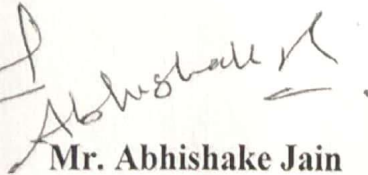 Abhishake
Mr. Abhishake Jain